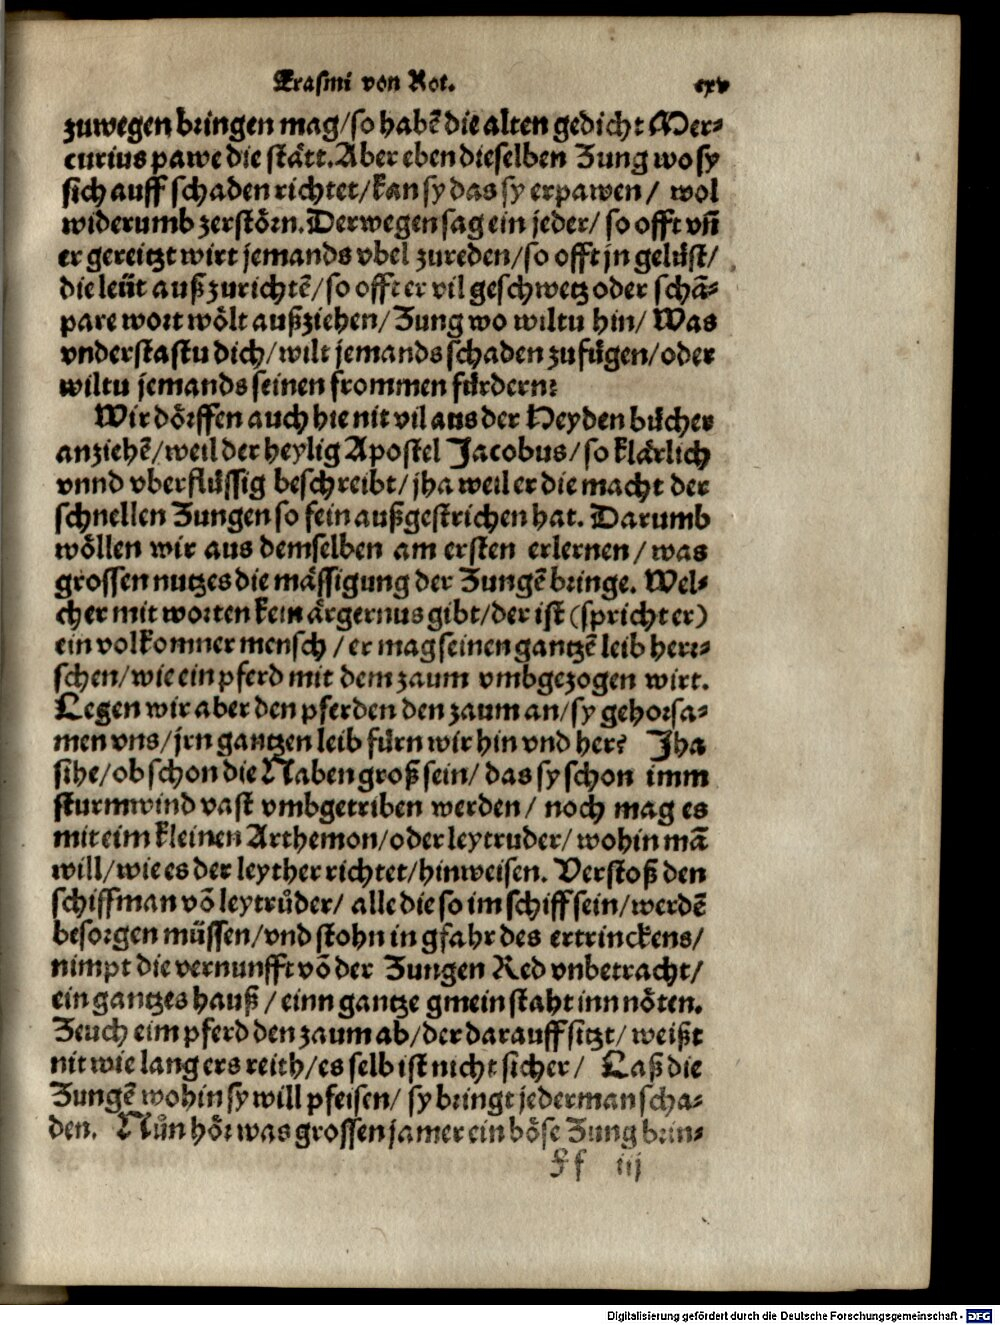 Erasmi von Rot. cxv
zuwegen bringen mag/so habē die alten gedicht Mer⸗
curius pawe die stätt. Aber eben dieselben Zung wo sy
sich auff schaden richtet/kan sy das sy erpawen/ wol
widerumb zerstörn. Derwegen sag ein jeder/ so offt vñ
er gereitzt wirt jemands vbel zureden/so offt jn gelüst/
die leüt auß zurichtē/so offt er vil geschwetz oder schā⸗
pare wort wölt außziehen/ Zung wo wiltu hin/ Was
vnderstastu dich/wilt jemands schaden zufügen/oder
wiltu jemands seinen frommen fürdern?
Wir dörffen auch hie nit vil aus der Heyden bücher
anziehē/weil der heylig Apostel Jacobus/so klärlich
vnnd vberflüssig beschreibt/jha weil er die macht der
schnellen Zungen so fein außgestrichen hat. Darumb
wöllen wir aus demselben am ersten erlernen/was
grossen nutzes die mässigung der Zungē bringe. Wel⸗
cher mit worten kein ärgernus gibt/der ist (spricht er)
ein volkommer mensch/er mag seinen gantzē leib herr⸗
schen/wie ein pferd mit dem zaum vmbgezogen wirt.
Legen wir aber den pferden den zaum an/sy gehorsa⸗
men vns/jrn gantzen leib fürn wir hin vnd her? Jha
sihe/ob schon die Naben groß sein/das sy schon imm
sturmwind vast vmbgetriben werden/ noch mag es
mit eim kleinen Arthemon/oder leytruder/wohin mā
will/wie es der leyther richtet/hinweisen. Verstoß den
schiffman võ leytrůder/ alle die so im schiff sein/werdē
besorgen müssen/vnd stohn in gfahr des ertrinckens/
nimpt die vernunfft võ der Zungen Red vnbetracht/
ein gantzes hauß/einn gantze gmein staht inn nöten.
Zeuch eim pferd den zaum ab/der darauff sitzt/weißt
nit wie lang ers reith/es selb ist nicht sicher/ Laß die
Zungē wohin sy will pfeisen/ sy bringt jederman scha⸗
den. Nůn hör was grossen jamer ein böse Zung brin⸗
Ff iij
Digitalisierung gefördert durch die Deutsche Forschungsgemeinschaft - DFG